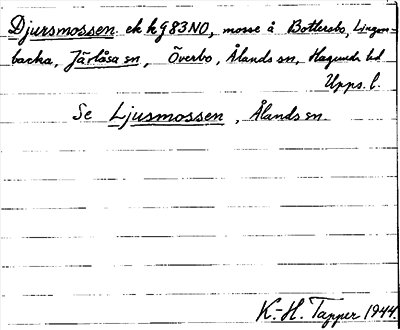 Djursmossen. ek kg 83NO, mosse å Bottersbo, Lingon-
backa, Järlåsa sn, Överbo, Ålands sn, Hagunda hd
Upps. l.
Se Ljusmossen, Ålands sn.
K.-H. Tapper 1944.